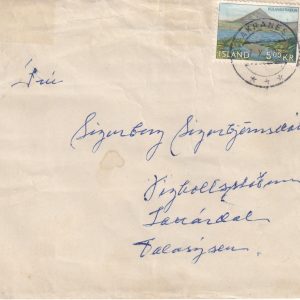 AKRANES
ÍSLAND 5.00 KR
Frú
Sigurborg Sigurbjörnsdó
Laxárdal
Dalasýslu.